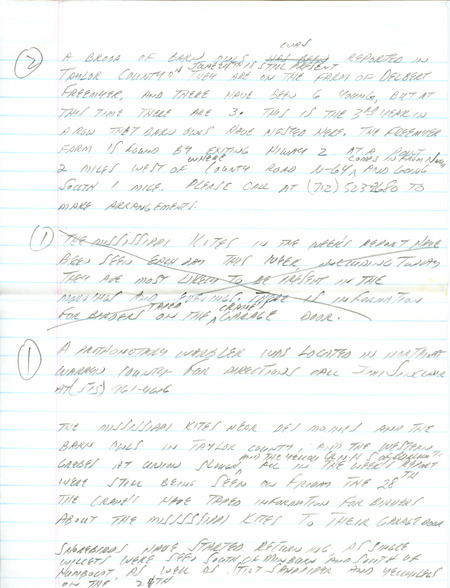 was
② A BROOD OF BARN OWLS HAS BEEN REPORTED IN
ONE IS STILL PRESENT
TAYLOR COUNTY THEY ARE ON THE FARM OF DELBERT
FREEMYER, AND THERE HAVE BEEN 6 YOUNG, BUT AT
THIS TIME THERE ARE 3. THIS IS THE 3RD YEAR IN
A ROW THAT BARN OWLS HAVE NESTED HERE. THE FREEMYER
FARM IS FOUND BY EXITING HIWAY 2 AT A POINT
WHERE COMES IN FROM NORTH
2 MILES WEST OF COUNTY ROAD N-64 AND GOING
SOUTH 1 MILE. PLEASE CALL AT (712) 523-2680 TO
MAKE ARRANGEMENTS.
① THE MISSISSIPPI KITES IN THE WEEK'S REPORT HAVE
BEEN SEEN EACH DAY THIS WEEK INCLUDING TODAY
THEY ARE MOST LIKELY TO BE PRESENT IN THE
MORNINGS AND EVENINGS. THERE IS INFORMATION
TAPED CRANE'S
FOR BIRDERS ON THE GARAGE DOOR.
① A PROTHONOTARY WARBLER WAS LOCATED IN NORTHWEST
WARREN COUNTY FOR DIRECTIONS CALL JIM SINCLAIR
AT (515) 961-4606
THE MISSISSIPPI KITES NEAR DES MOINES AND THE
BARN OWLS IN TAYLOR COUNTY AND THE WESTERN
AND THE YELLOW
GREBES AT UNION SLOUGH ALL IN THE WEEK'S REPORT
WERE STILL BEING SEEN ON FRIDAY THE 28TH
THE CRANE'S HAVE TAPED INFORMATION FOR BIRDERS
ABOUT THE MISSISSIPPI KITES TO THEIR GARAGE DOOR
SHOREBIRDS HAVE STARTED RETURNING, AS SINGLE
WILLETS WERE SEEN SOUTH OF DENBORN AND SOUTH OF
HUMBOLDT AS WELL AS STILT SANDPIPER AND YELLOWLEGS
ON THE